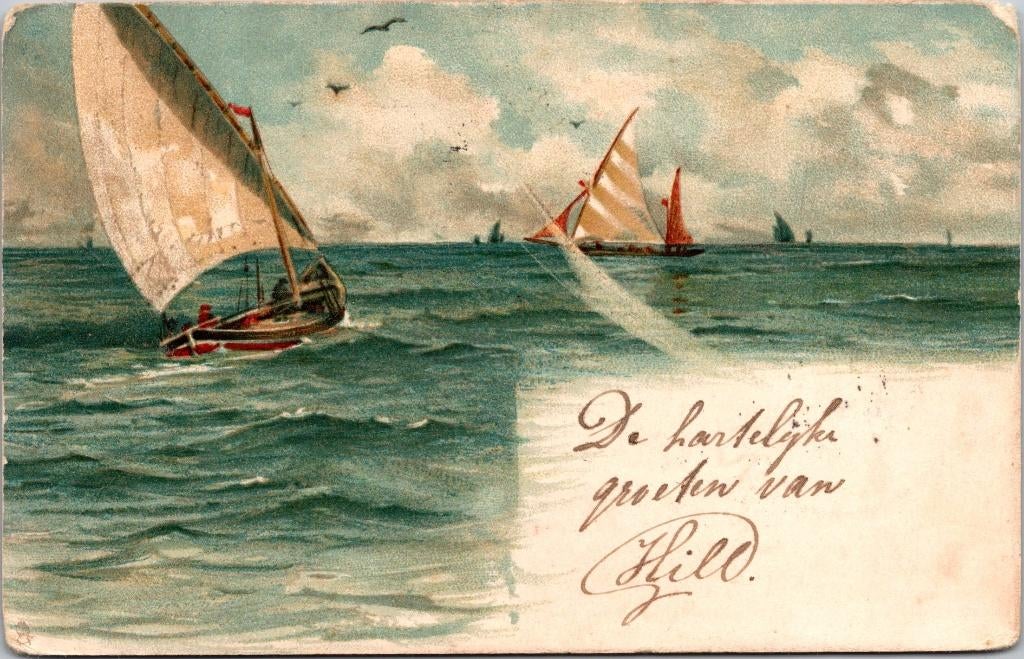 De hartelijke
groeten van
Hild.